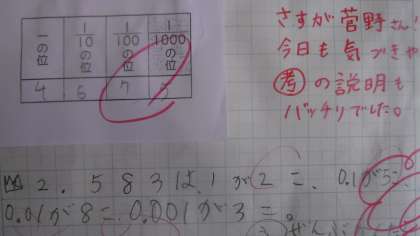 一の位 1/10の位 1/100の位 1/1000の位
4 6 7
さすが菅野さん!
今日も気づきや
考の説明も
バッチリでした。
2.583は、1が2こ、0.1が5こ
0.01が8こ、0.001が3こ。